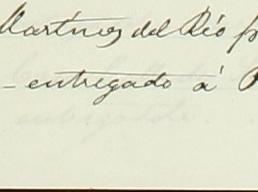 Martínez del Río fr
- entregado á P